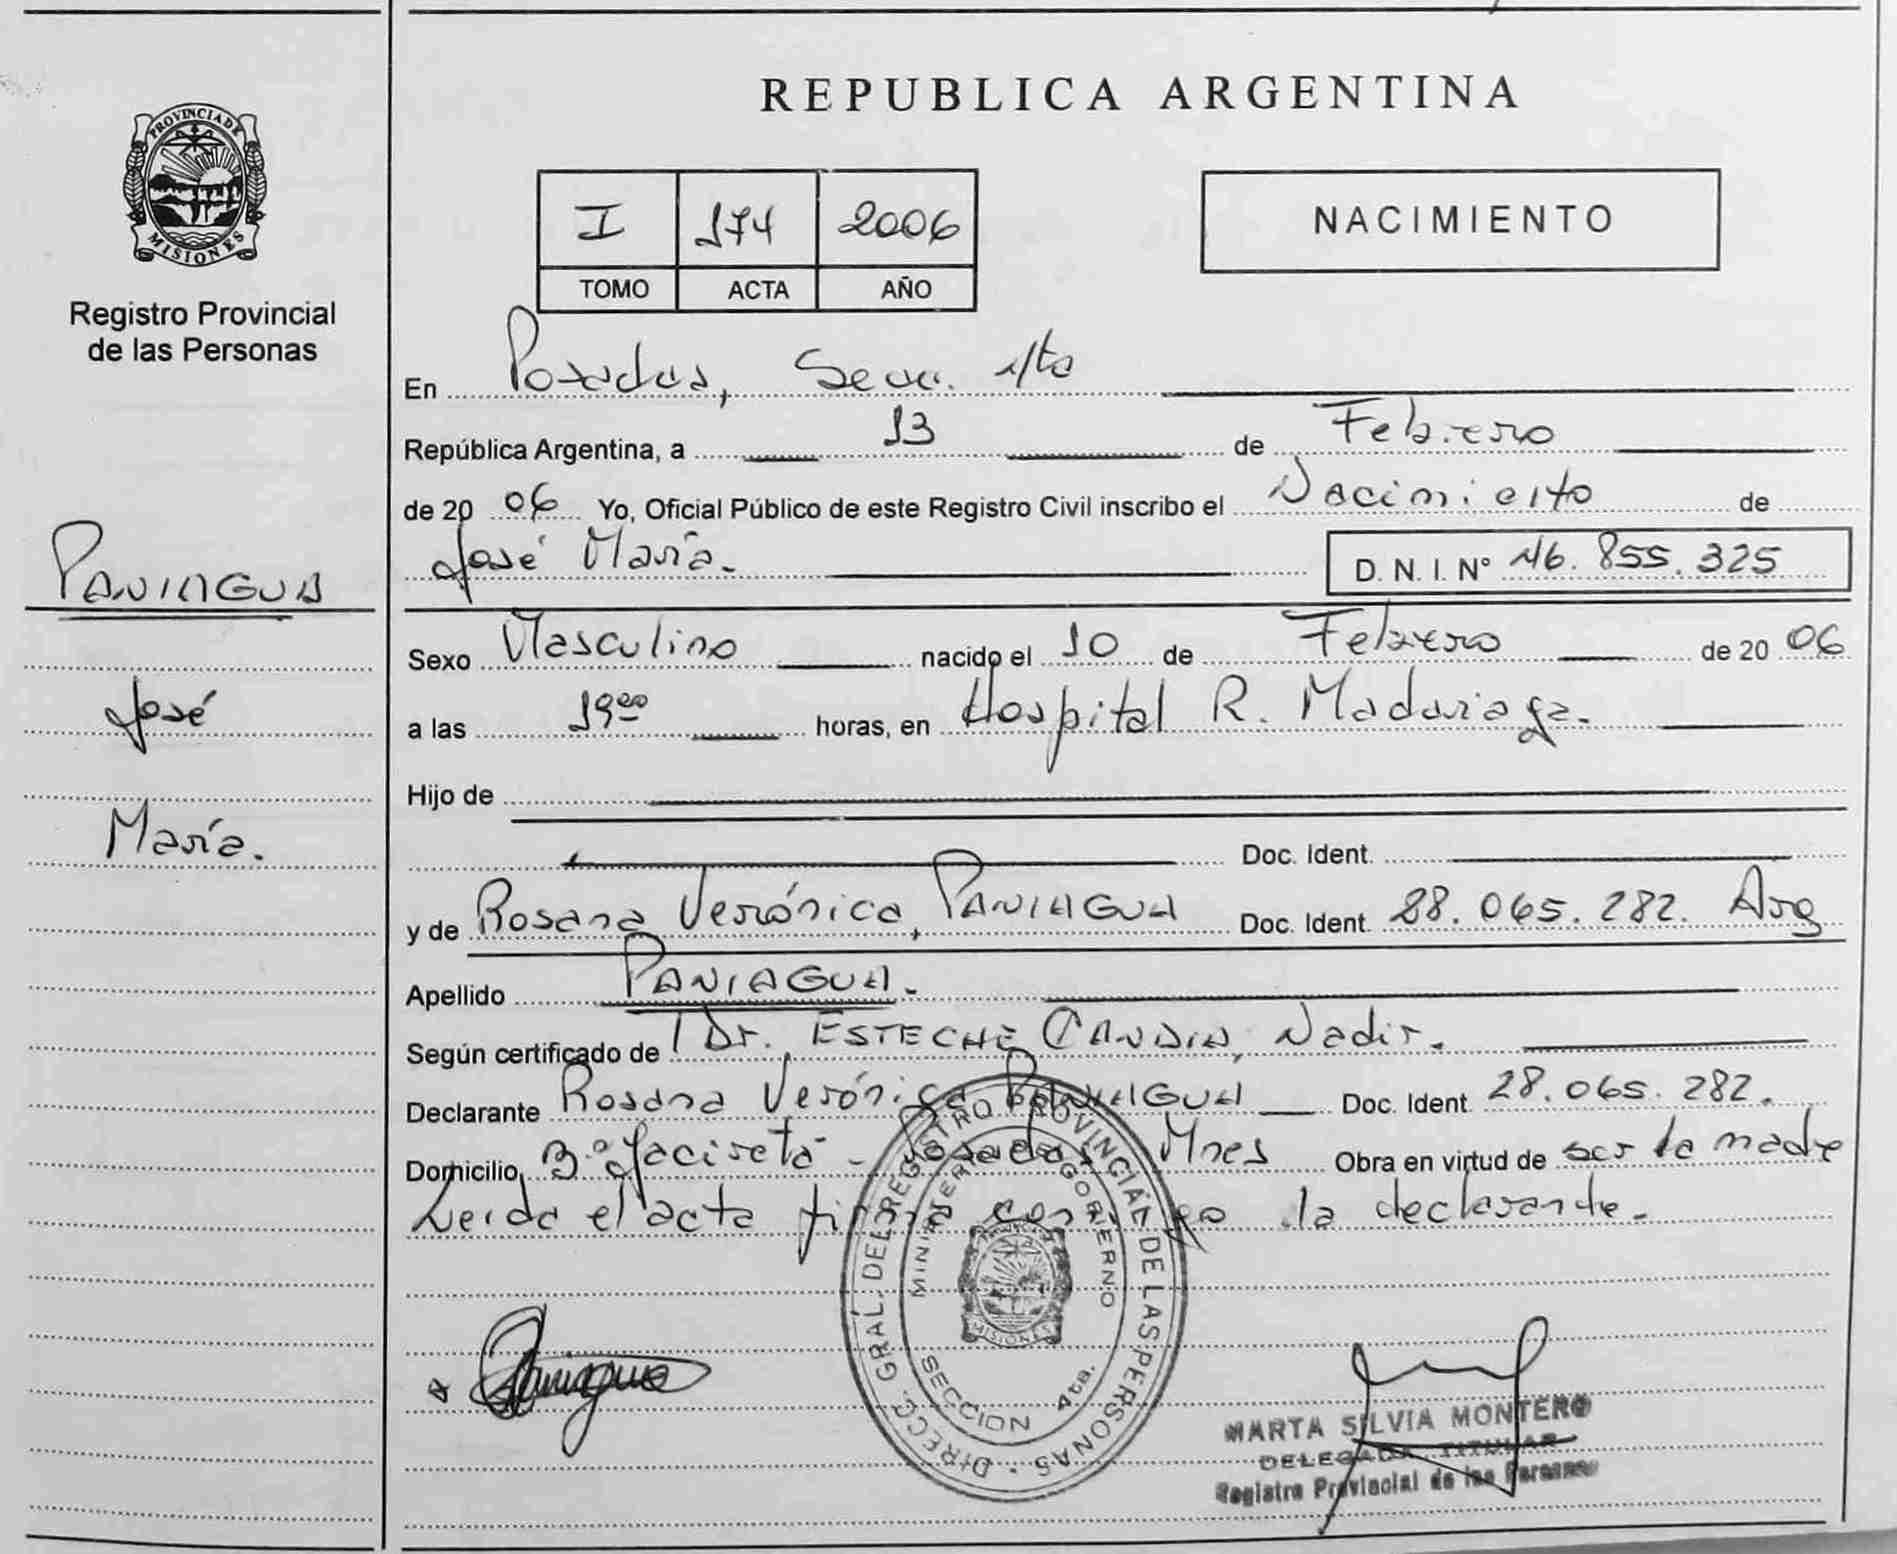 PROVINCIA DE
MISIONES
Registro Provincial
de las Personas
PANIAGUA
José
María.
REPUBLICA ARGENTINA
I 174 2006
TOMO ACTA AÑO
NACIMIENTO
En Posadas, Secc. 4ta
República Argentina, a 13 de Febrero
de 2006 Yo, Oficial Público de este Registro Civil inscribo el Nacimiento de
José María.
D. N. I. N° 46.855.325
Sexo Masculino nacido el 10 de Febrero de 2006
a las 19:00 horas, en Hospital R. Madariaga.
Hijo de
Doc. Ident.
y de Rosana Verónica, PANIAGUA Doc. Ident. 28.065.282. Arg
Apellido PANIAGUA.
Según certificado de Dr. ESTECHE Nadir.
Declarante Rosana Verónica PANIAGUA Doc. Ident. 28.065.282.
Domicilio B° Yaciretá - Posadas, Mnes Obra en virtud de ser la madre
Leída el acta firma conmigo la declarante.
DIRECC. GRAL. DEL REGISTRO PROVINCIAL DE LAS PERSONAS
MINISTERIO DE GOBIERNO
MISIONES
SECCION 4ta.
Paniagua
MARTA SILVIA MONTERO
DELEGADA TITULAR
Registro Provincial de las Personas